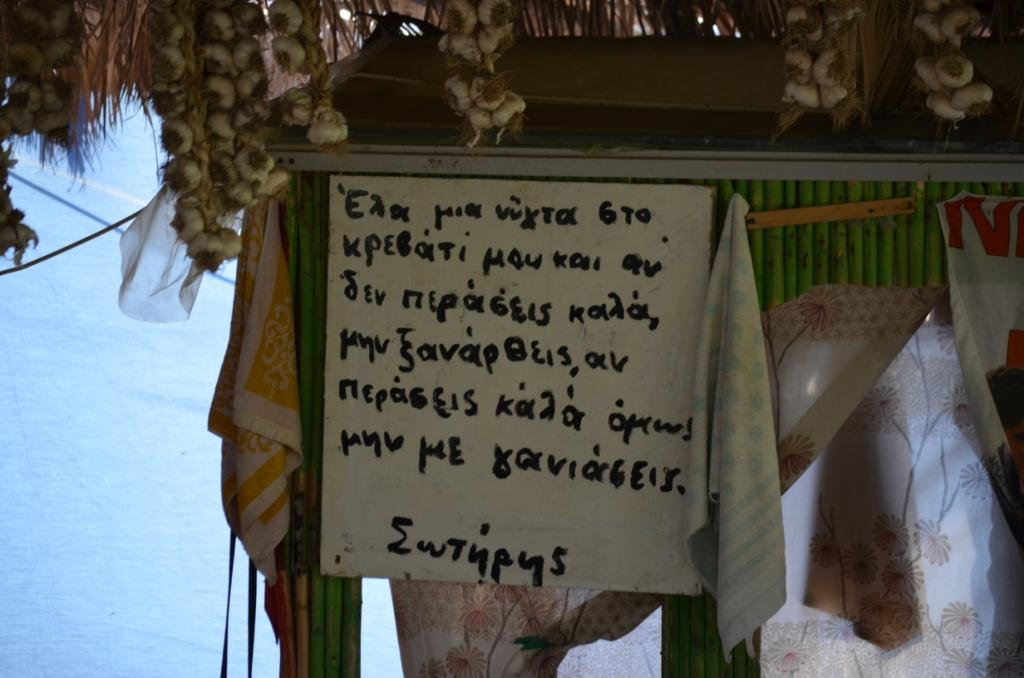 Έλα μια νύχτα στο
κρεβάτι μου και αν
δεν περάσεις καλά,
μην ξανάρθεις, αν
περάσεις καλά όμως
μην με γανιάσεις.
Σωτήρης